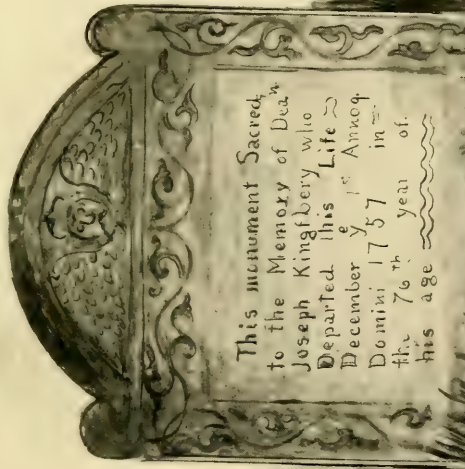 This monument Sacred,
to the Memory of Deaⁿ
Joseph Kingſbery who
Departed this Life
December yᵉ 1ˢᵗ Annoq.
Domini 1757 in
the 76ᵗʰ year of
his age